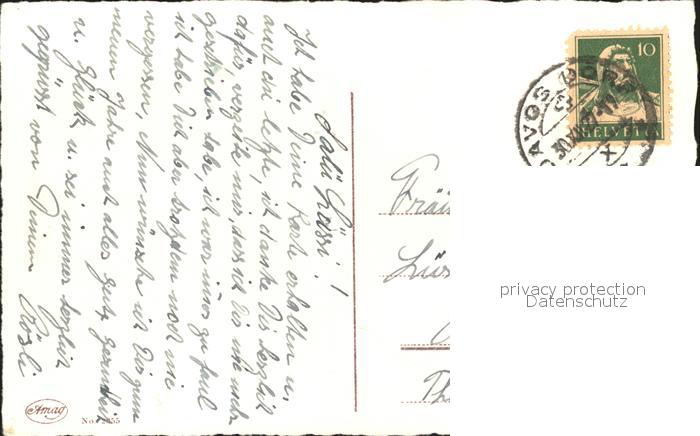 Salü Lüssi!
Ich habe Deine Karte erhalten u.
auch die letzte, ich danke Dir herzlich
dafür, verzeihe mir, dass ich Dir nie mehr
geschrieben habe, ich war immer zu faul
ich habe Dich aber trotzdem noch nie
vergessen, Nun wünsche ich Dir zum
neuen Jahr auch alles gute, Gesundheit
u. Glück u. sei immer herzlich
gegrüsst von Deinem Rösli
Amag
No. 2355
10
HELVETIA
DAVOS
30.XII.27
Fräu
Th
privacy protection
Datenschutz